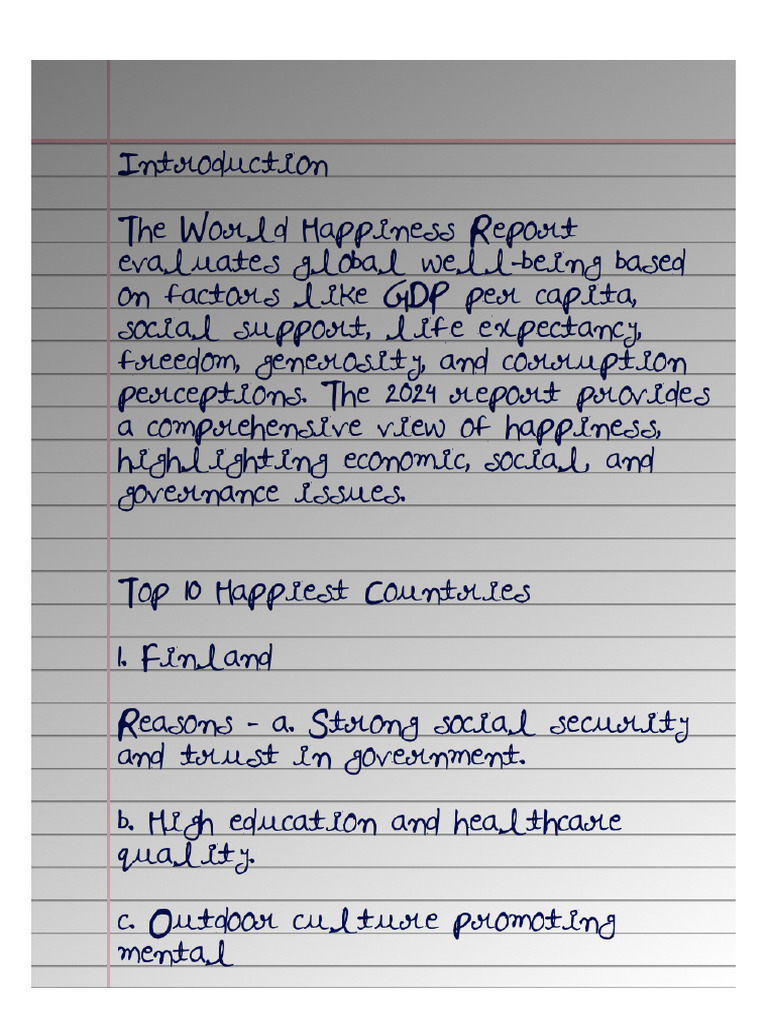 Introduction
The World Happiness Report
evaluates global well-being based
on factors like GDP per capita,
social support, life expectancy,
freedom, generosity, and corruption
perceptions. The 2024 report provides
a comprehensive view of happiness,
highlighting economic, social, and
governance issues.
Top 10 Happiest Countries
1. Finland
Reasons - a. Strong social security
and trust in government.
b. High education and healthcare
quality.
c. Outdoor culture promoting
mental